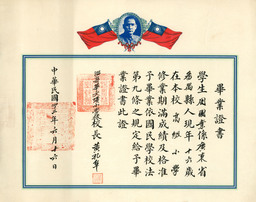 畢業證書
學生周國業係廣東省
番禺縣人現年十六歲
在本校高級小學
修業期滿成績及格准
予畢業依國民學校法
第九條之規定給予畢
業證書此證
校長黃祀
中華民國卅五年六月十六日